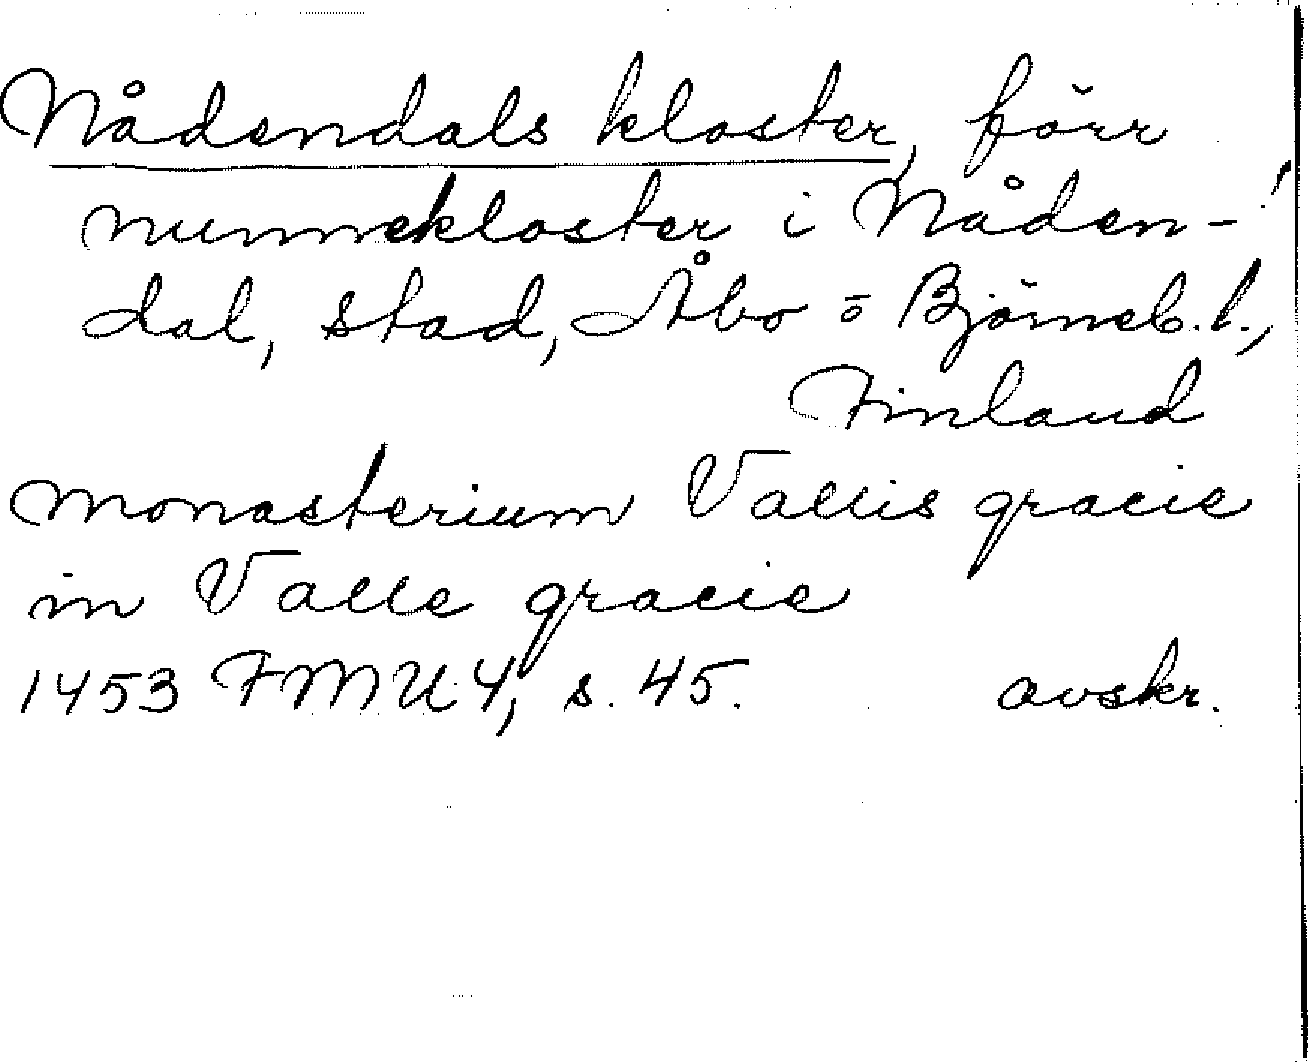 Nådendals kloster, förr
nunnekloster i Nåden-
dal, stad, Åbo = Björneb. l.,
Finland
monasterium Vallis gracie
in Valle gracie
1453 FMU 4, s. 45. avskr.